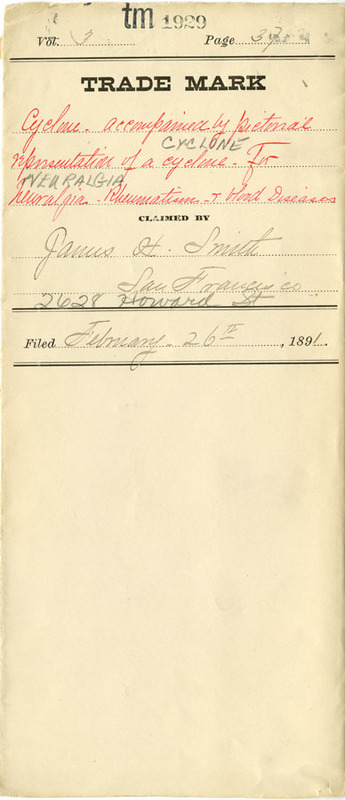 tm 1929
Vol. 3 Page
TRADE MARK
Cyclone. accompanied by pictorial
CYCLONE
representation of a cyclone. For
NEURALGIA
Neuralgia. Rheumatism. & blood Diseases
CLAIMED BY
James H. Smith
San Francisco
2628 Howard St
Filed February 26TH, 1891.